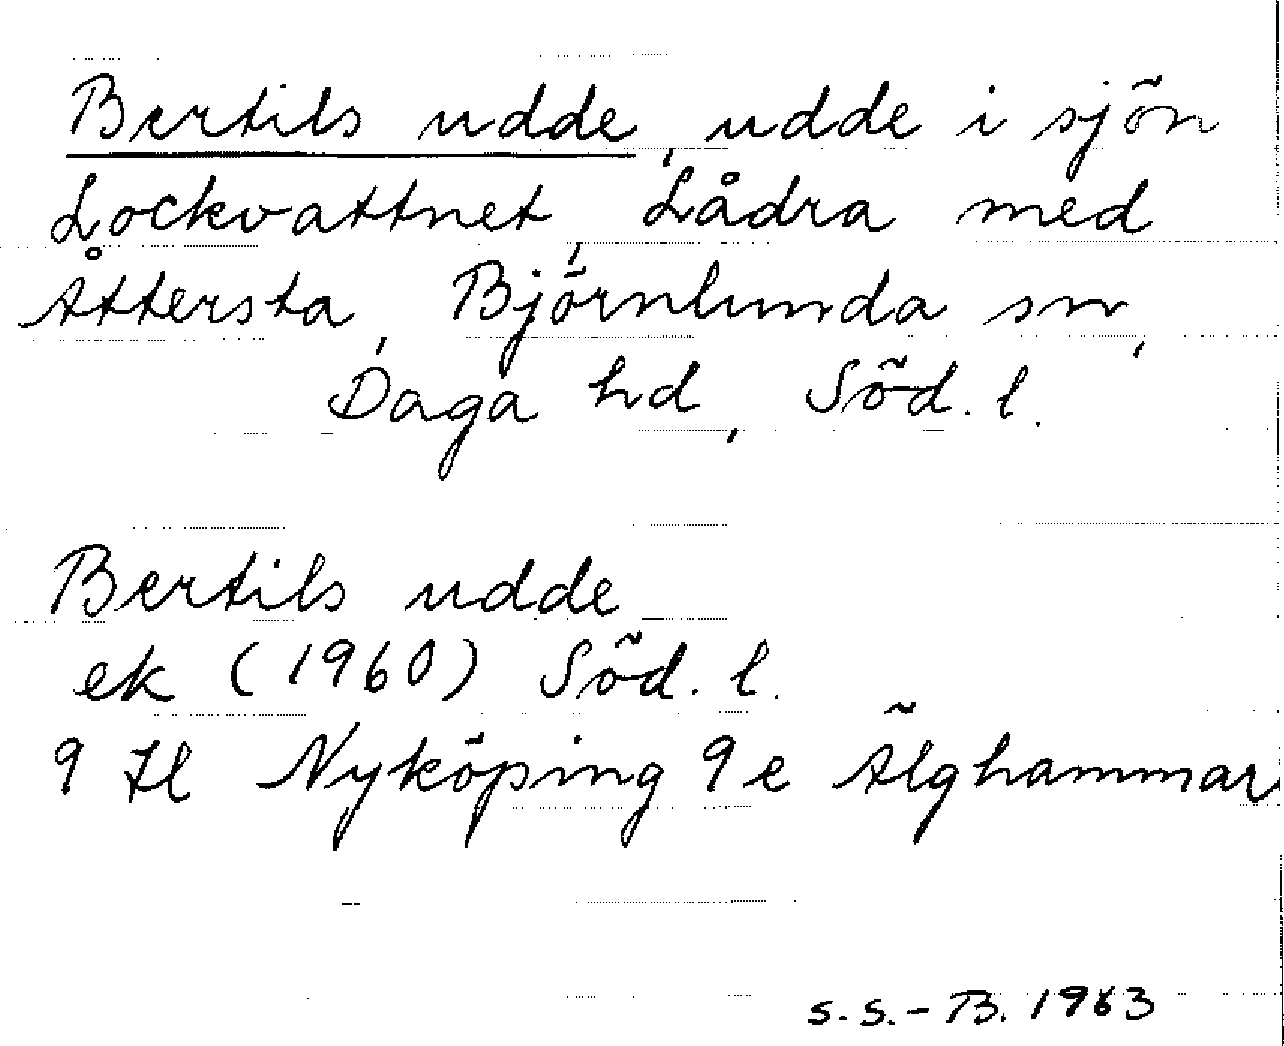 Bertils udde, udde i sjön
Lockvattnet, Lådra med
Åttersta, Björnlunda sn,
Daga hd, Söd. l.
Bertils udde
ek (1960) Söd. l.
9 H Nyköping 9 e Älghammar
S.S.-B. 1963